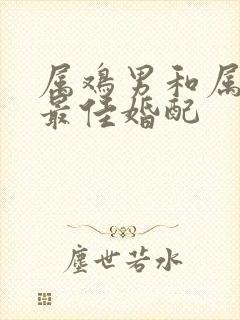 属鸡男和属
最佳婚配
尘世若水